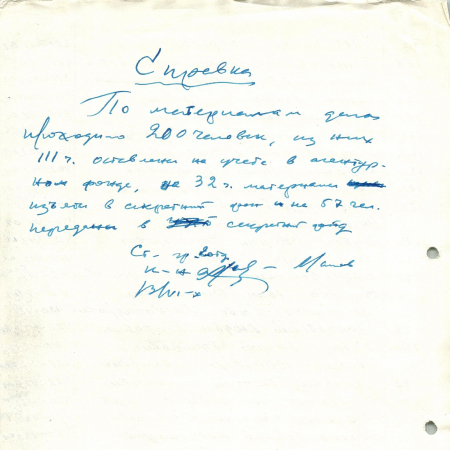 Справка
По материалам дела
проходило 200 человек, из них
111 ч. оставлены на учете в агентур-
ном фонде, на 32 ч. материалы
изъяты в секретный фонд и на 57 чел.
переданы в секретный фонд
Ст.